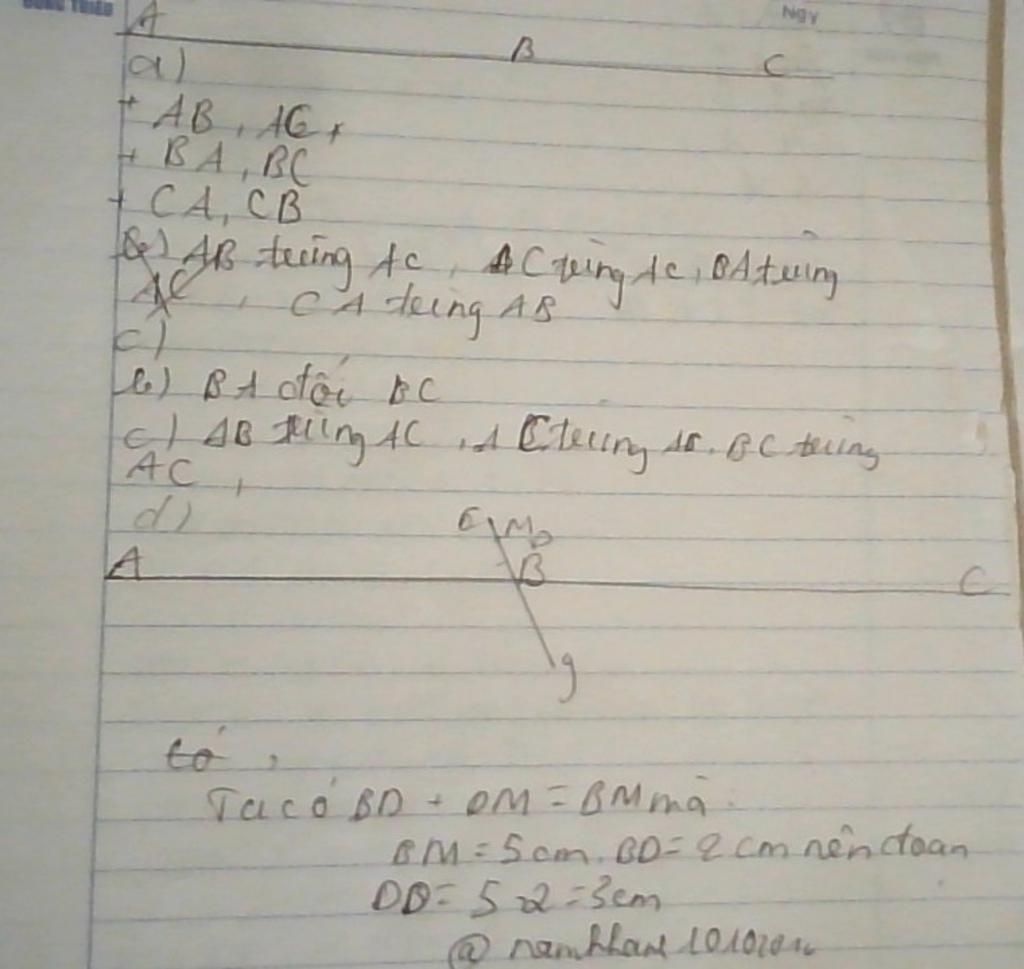 A B C
a)
+ AB, AC,
+ BA, BC
+ CA, CB
AB trùng AC, AC trùng AC, BA trùng
AC, CA trùng AB
c)
b) BA đối BC
c) AB trùng AC, AC trùng AC. BC trùng
AC,
d)
M D
A B C
y
có,
Ta có BD + DM = BM mà
BM = 5cm. BD = 2cm nên đoan
5 - 2 = 3cm
@